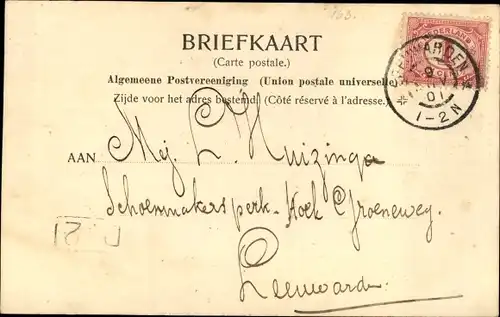 BRIEFKAART
(Carte postale.)
Algemeene Postvereeniging (Union postale universelle)
Zijde voor het adres bestemd. (Côté réservé à l'adresse.)
NEDERLAND
LEEUWARDEN
01
1-2N
AAN Mej. L. Huizinga
Schoenmakersperk-hoek Groeneweg.
Leeuwarden